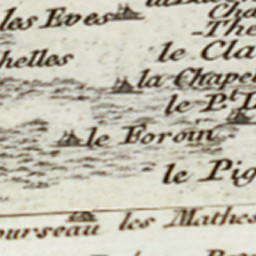 les Eves
Cha
-The
helles
le Cla
la Chapel
le P.t L
le Foroin
le Pig
ourseau
les Mathes